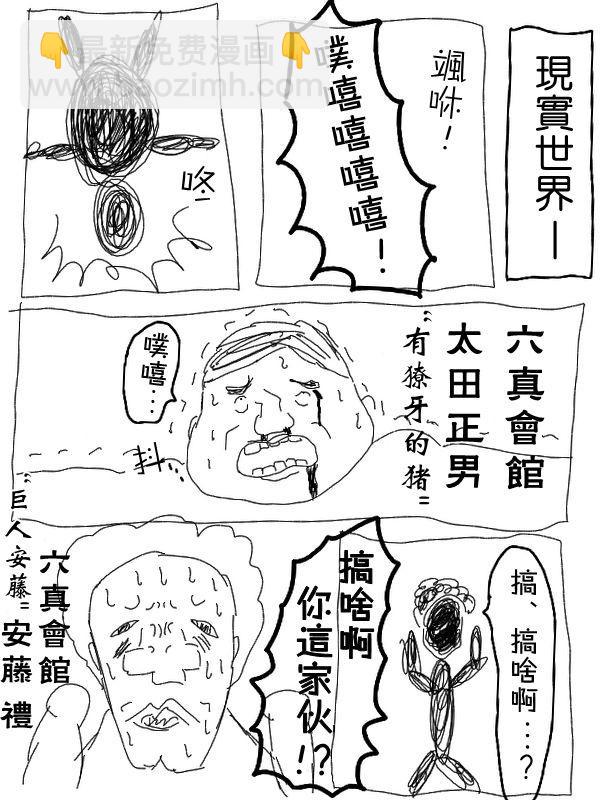 現實世界—
颯咻！
噗嘻嘻嘻嘻！
👇最新免費漫画👇
www.baozimh.com
咚
六真會館
太田正男
"有獠牙的猪"
噗嘻…
抖…
搞、搞啥啊…？
搞啥啊
你這家伙!?
六真會館
"巨人安藤"安藤 禮